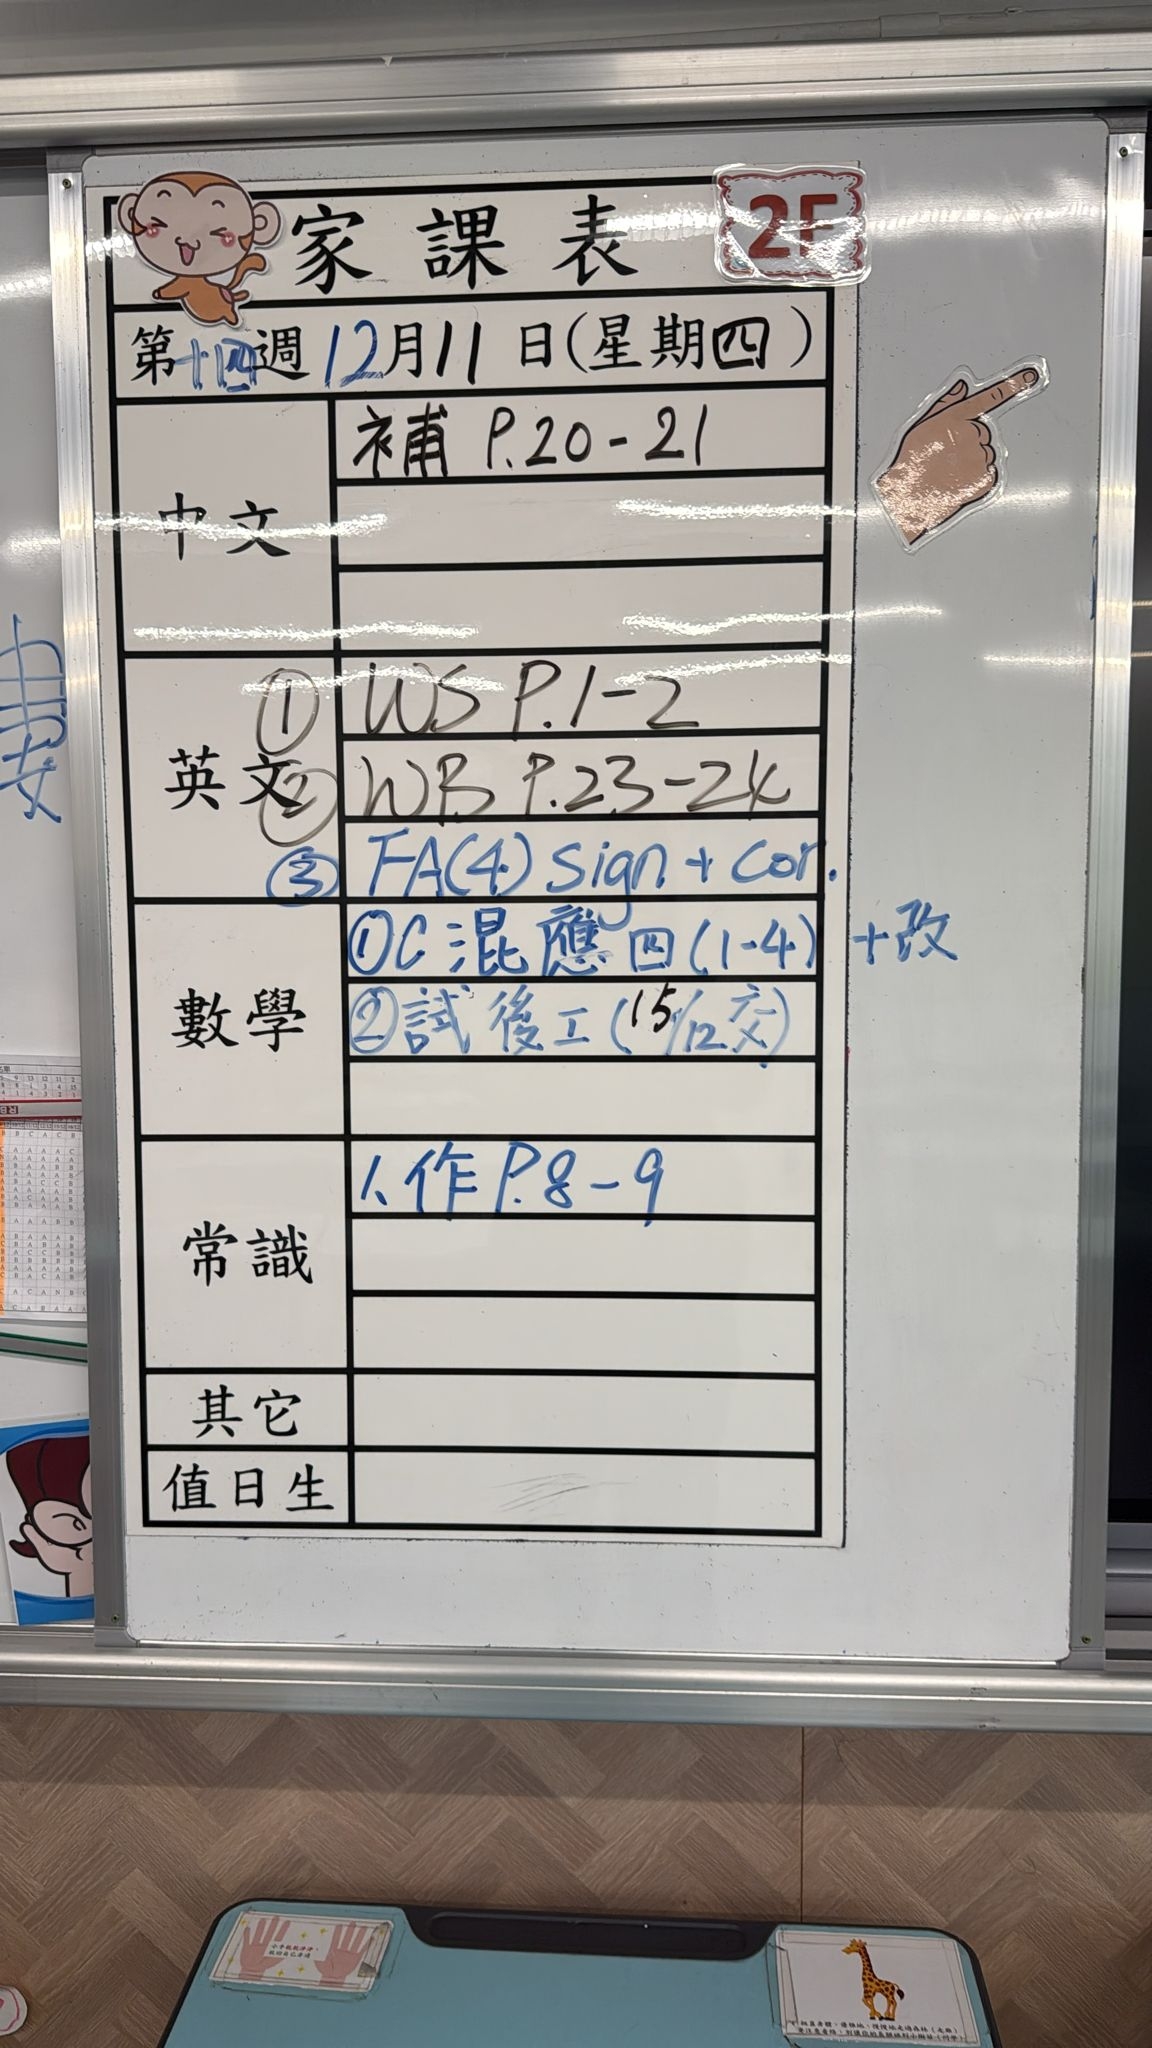 家課表 2F
第十四週 12月11日(星期四)
中文
補 P.20-21
英文
① WS P.1-2
② WB P.23-24
③ FA(4) Sign + Cor.
數學
①C 混應四(1-4) +改
②試後工(15/12交)
常識
1、作 P.8-9
其它
值日生
小手乾乾淨淨，